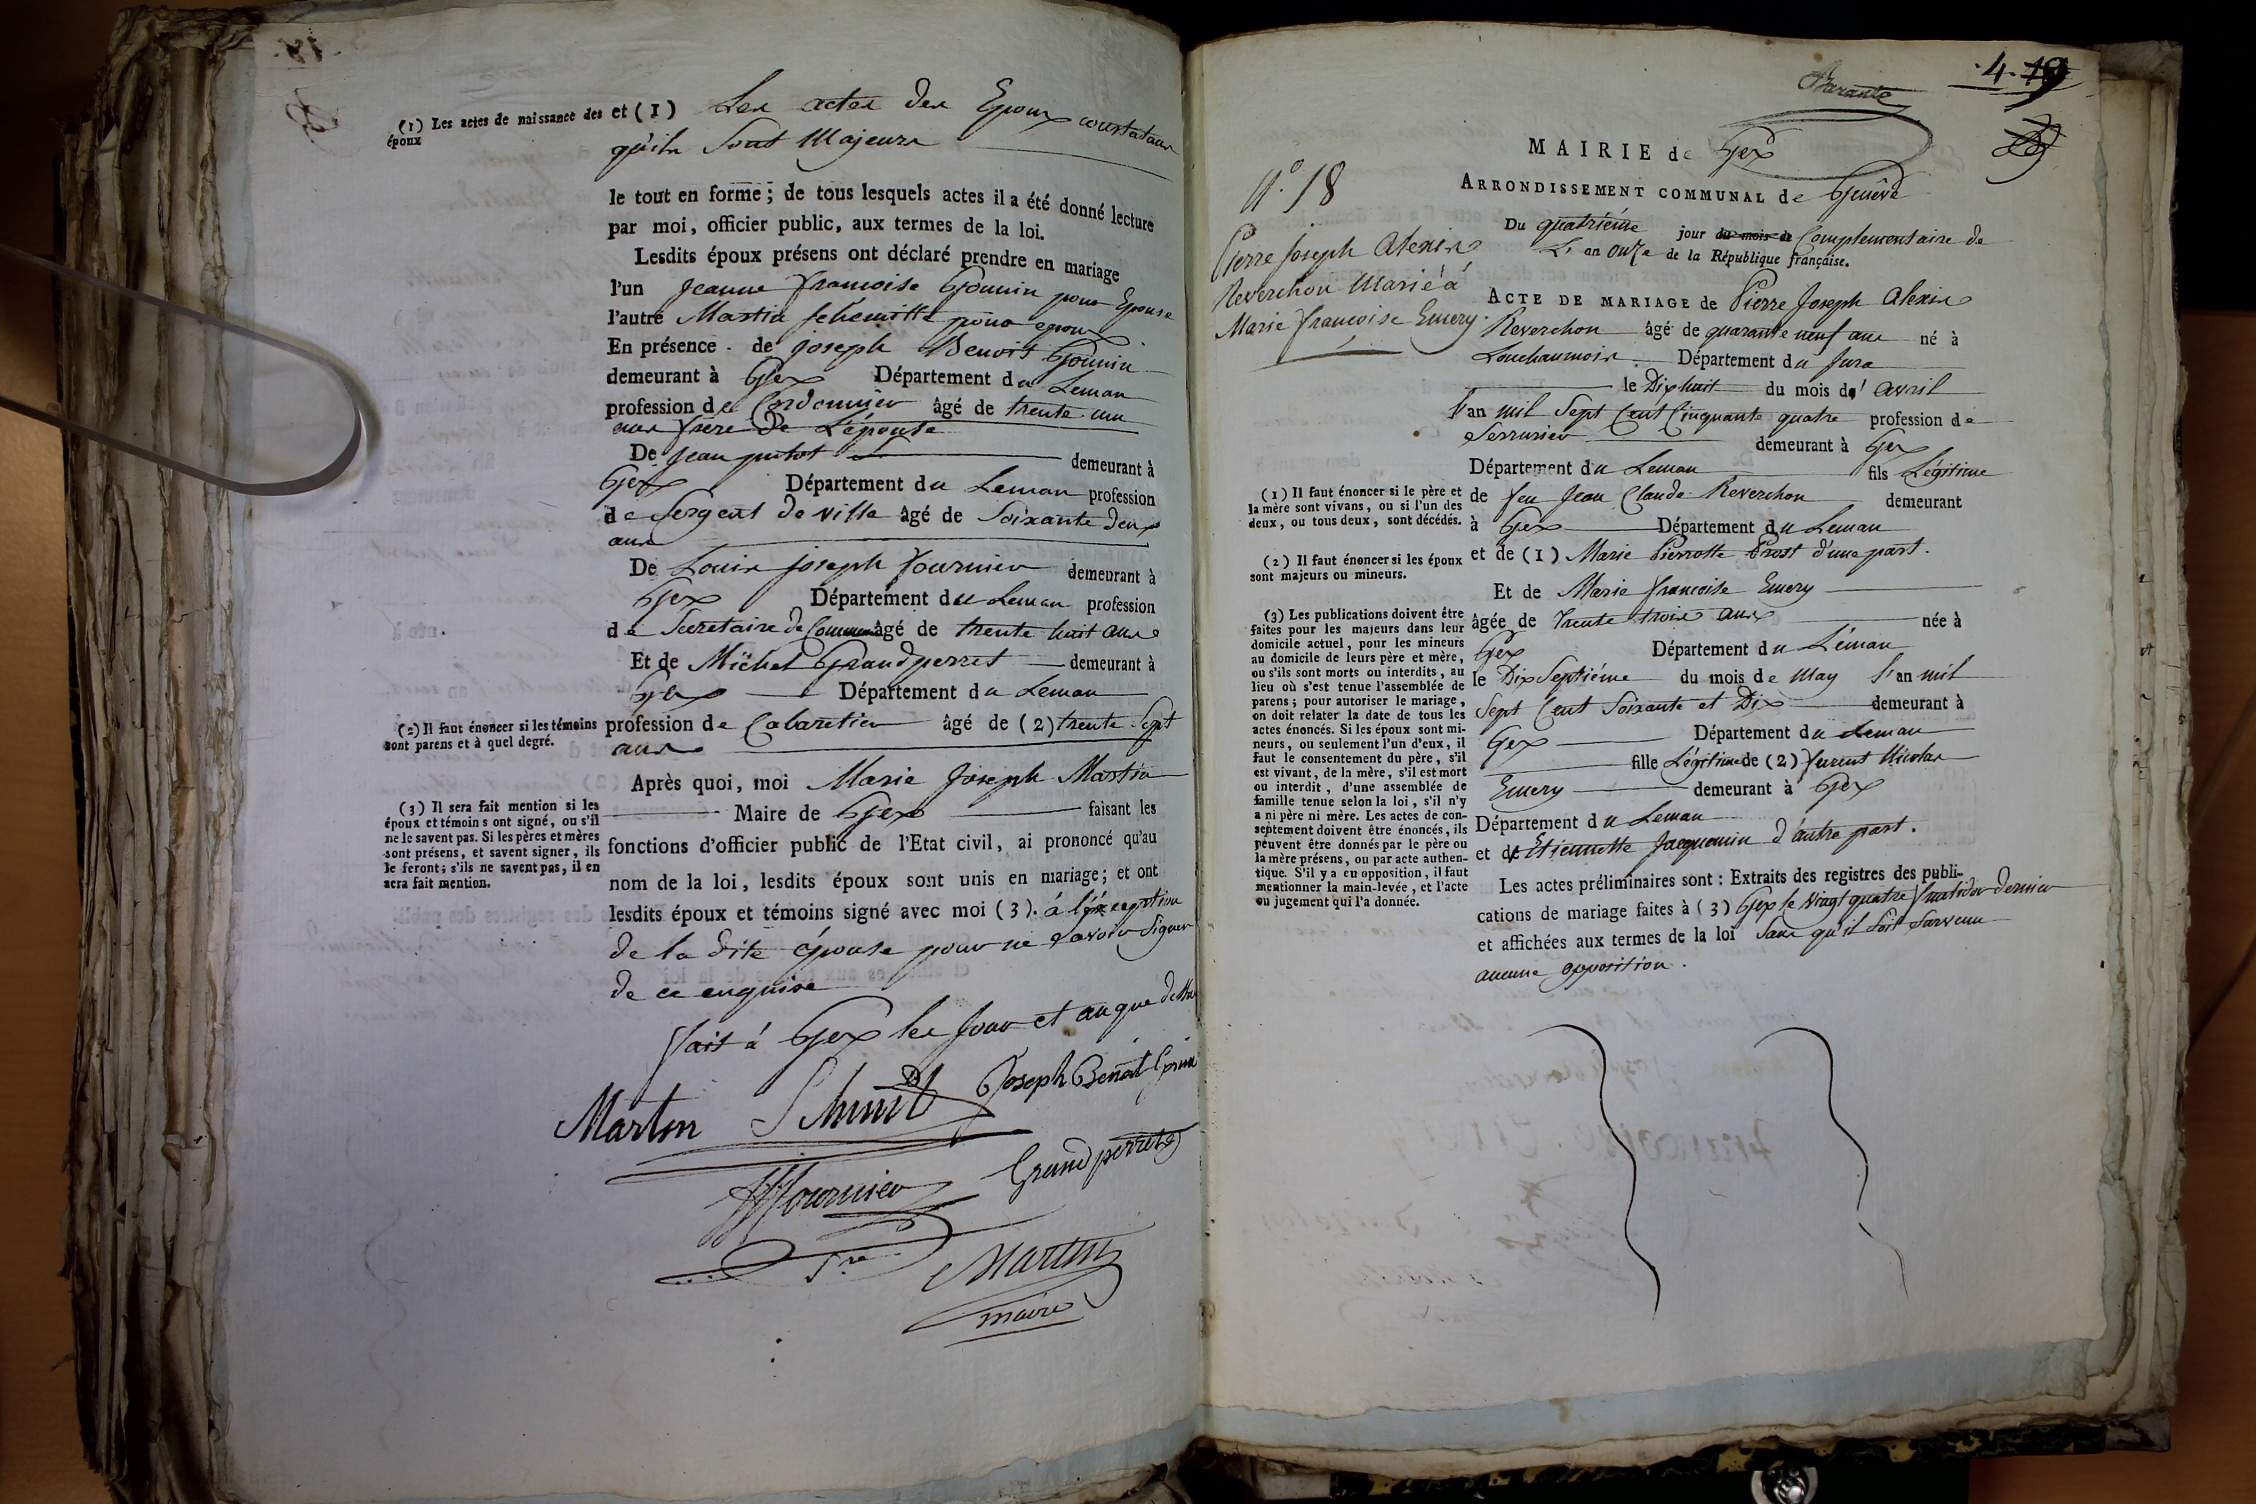 (1) Les actes de naissance des
époux
et (1) Les actes des Epoux constatans
qu'ils Sont Majeurs
le tout en forme ; de tous lesquels actes il a été donné lecture
par moi, officier public, aux termes de la loi.
Lesdits époux présens ont déclaré prendre en mariage
l'un Jeanne françoise Gounin pour Epouse
l'autre Martin Schemitte pour epoux
En présence de joseph Benoit Gounin
demeurant à Gex Département du Leman
profession de Cordonnier âgé de trente un
ans frere de L'épouse
De Jean putot demeurant à
Gex Département du Leman profession
de Sergent de ville âgé de Soixante deux
ans
De Louis joseph fournier demeurant à
Gex Département du Leman profession
de Secretaire de Commune âgé de trente huit ans
Et de Michel Grandperret demeurant à
Gex Département du Leman
(2) Il faut énoncer si les témoins
sont parens et à quel degré.
profession de Cabaretier âgé de (2) trente Sept
ans
Après quoi, moi Marie Joseph Martin
Maire de Gex faisant les
(3) Il sera fait mention si les
époux et témoins ont signé, ou s'il
ne le savent pas. Si les pères et mères
sont présens, et savent signer, ils
le feront ; s'ils ne savent pas, il en
sera fait mention.
fonctions d'officier public de l'Etat civil, ai prononcé qu'au
nom de la loi, lesdits époux sont unis en mariage ; et ont
lesdits époux et témoins signé avec moi (3). á l'exception
de la dite épouse pour ne Savoir Signer
de ce enquise
fait á Gex les Jour et an que dessus
Martin Schmit Joseph Benoit
fournier Grandperret
Sre Martin
maire
Barante
4. 19
MAIRIE de Gex
ARRONDISSEMENT COMMUNAL de Genêve
N.° 18
Pierre Joseph Alexis
Reverchon Marié á
Marie françoise Emery.
Du quatriéme jour du mois de Complementaire de
L'an onze de la République française.
ACTE DE MARIAGE de Pierre Joseph Alexis
Reverchon âgé de quarante neuf ans né à
Lonchaumois Département du Jura
le Dix huit du mois d'avril
l'an mil Sept Cent Cinquante quatre profession de
Serrurier demeurant à Gex
Département du Leman fils Légitime
de feu Jean Claude Reverchon demeurant
à Gex Département du Leman
et de (1) Marie Pierrotte Prost d'une part.
(1) Il faut énoncer si le père et
la mère sont vivans, ou si l'un des
deux, ou tous deux, sont décédés.
(2) Il faut énoncer si les époux
sont majeurs ou mineurs.
(3) Les publications doivent être
faites pour les majeurs dans leur
domicile actuel, pour les mineurs
au domicile de leurs père et mère,
ou s'ils sont morts ou interdits, au
lieu où s'est tenue l'assemblée de
parens ; pour autoriser le mariage,
on doit relater la date de tous les
actes énoncés. Si les époux sont mi-
neurs, ou seulement l'un d'eux, il
faut le consentement du père, s'il
est vivant, de la mère, s'il est mort
ou interdit, d'une assemblée de
famille tenue selon la loi, s'il n'y
a ni père ni mère. Les actes de con-
sentement doivent être énoncés, ils
peuvent être donnés par le père ou
la mère présens, ou par acte authen-
tique. S'il y a eu opposition, il faut
mentionner la main-levée, et l'acte
ou jugement qui l'a donnée.
Et de Marie françoise Emery
âgée de Trente trois ans née à
Gex Département du Léman
le Dix Septiéme du mois de May l'an mil
Sept Cent Soixante et Dix demeurant à
Gex Département du Leman
fille Légitime de (2) Nicolas
Emery demeurant à Gex
Département du Leman
et de Etiennette Jacquemin d'autre part.
Les actes préliminaires sont : Extraits des registres des publi-
cations de mariage faites à (3) Gex le Vingt quatre fructidor dernier
et affichées aux termes de la loi Sans qu'il Soit Survenu
aucune opposition.